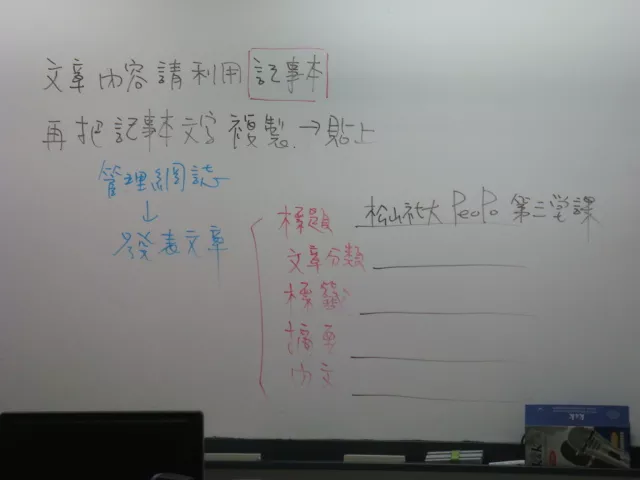 文章內容請利用記事本
再把記事本文字複製.→貼上
管理網誌
↓
發表文章
標題 松山社大 PeoPo 第三学課
文章分類
標籤
摘要
內文